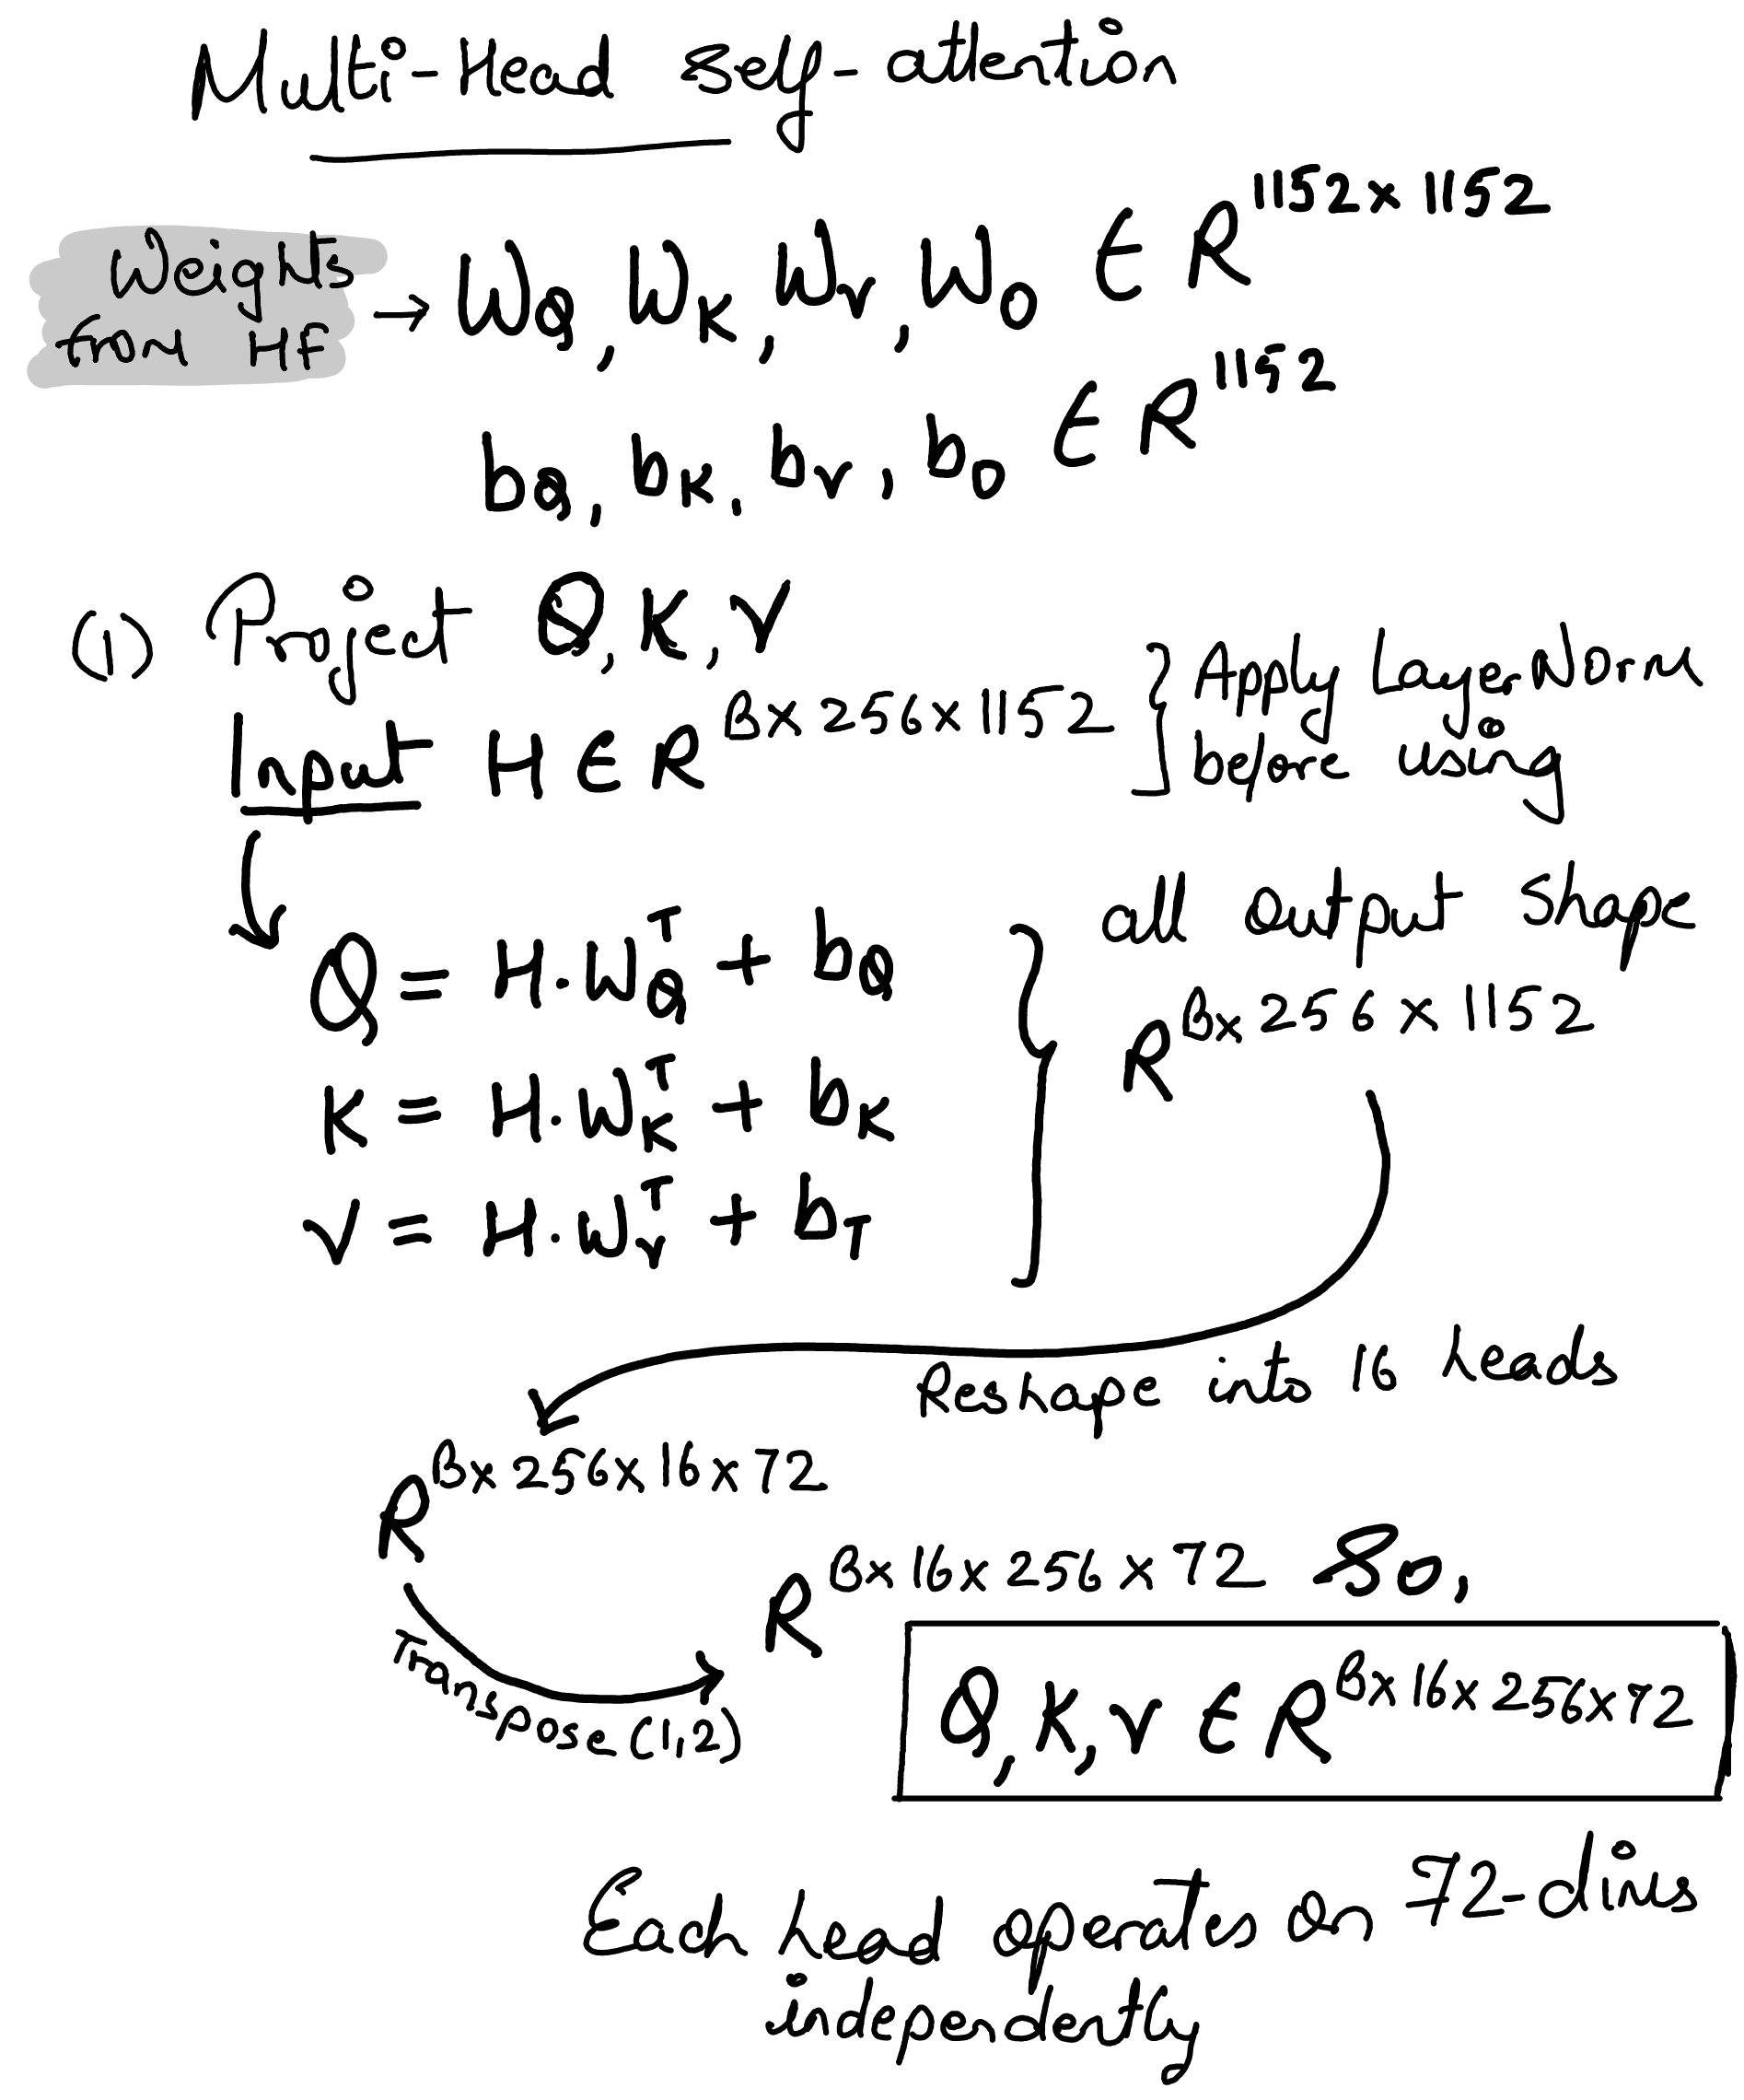 Multi-Head Self-attention
Weights from HF → W_Q, W_K, W_V, W_O ∈ R^{1152×1152}
b_Q, b_K, b_V, b_O ∈ R^{1152}
(1) Project Q, K, V
Input H ∈ R^{B×256×1152} } Apply LayerNorm before using
Q = H.W_Q^T + b_Q
K = H.W_K^T + b_K
V = H.W_V^T + b_T
} all output shape
R^{B×256×1152}
Reshape into 16 heads
R^{B×256×16×72}
Transpose (1,2)
R^{B×16×256×72} So,
Q, K, V ∈ R^{B×16×256×72}
Each head operates on 72-dims
independently